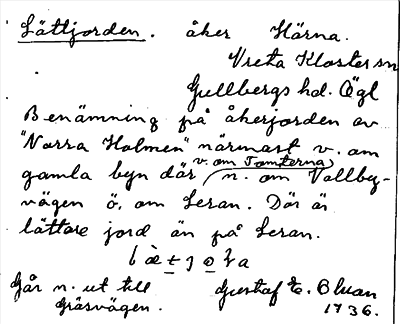 Lättjorden. åker Härna.
Vreta Kloster sn
Gullbergs hd. Ögl
Benämning på åkerjorden av
"Norra Holmen" närmast v. om
v. om Tomterna
gamla byn där n. om Vallby-
vägen ö. om Leran. Där är
lättare jord än på Leran.
Går n. ut till Gustaf E. Bluan
Gräsvägen. 1736.